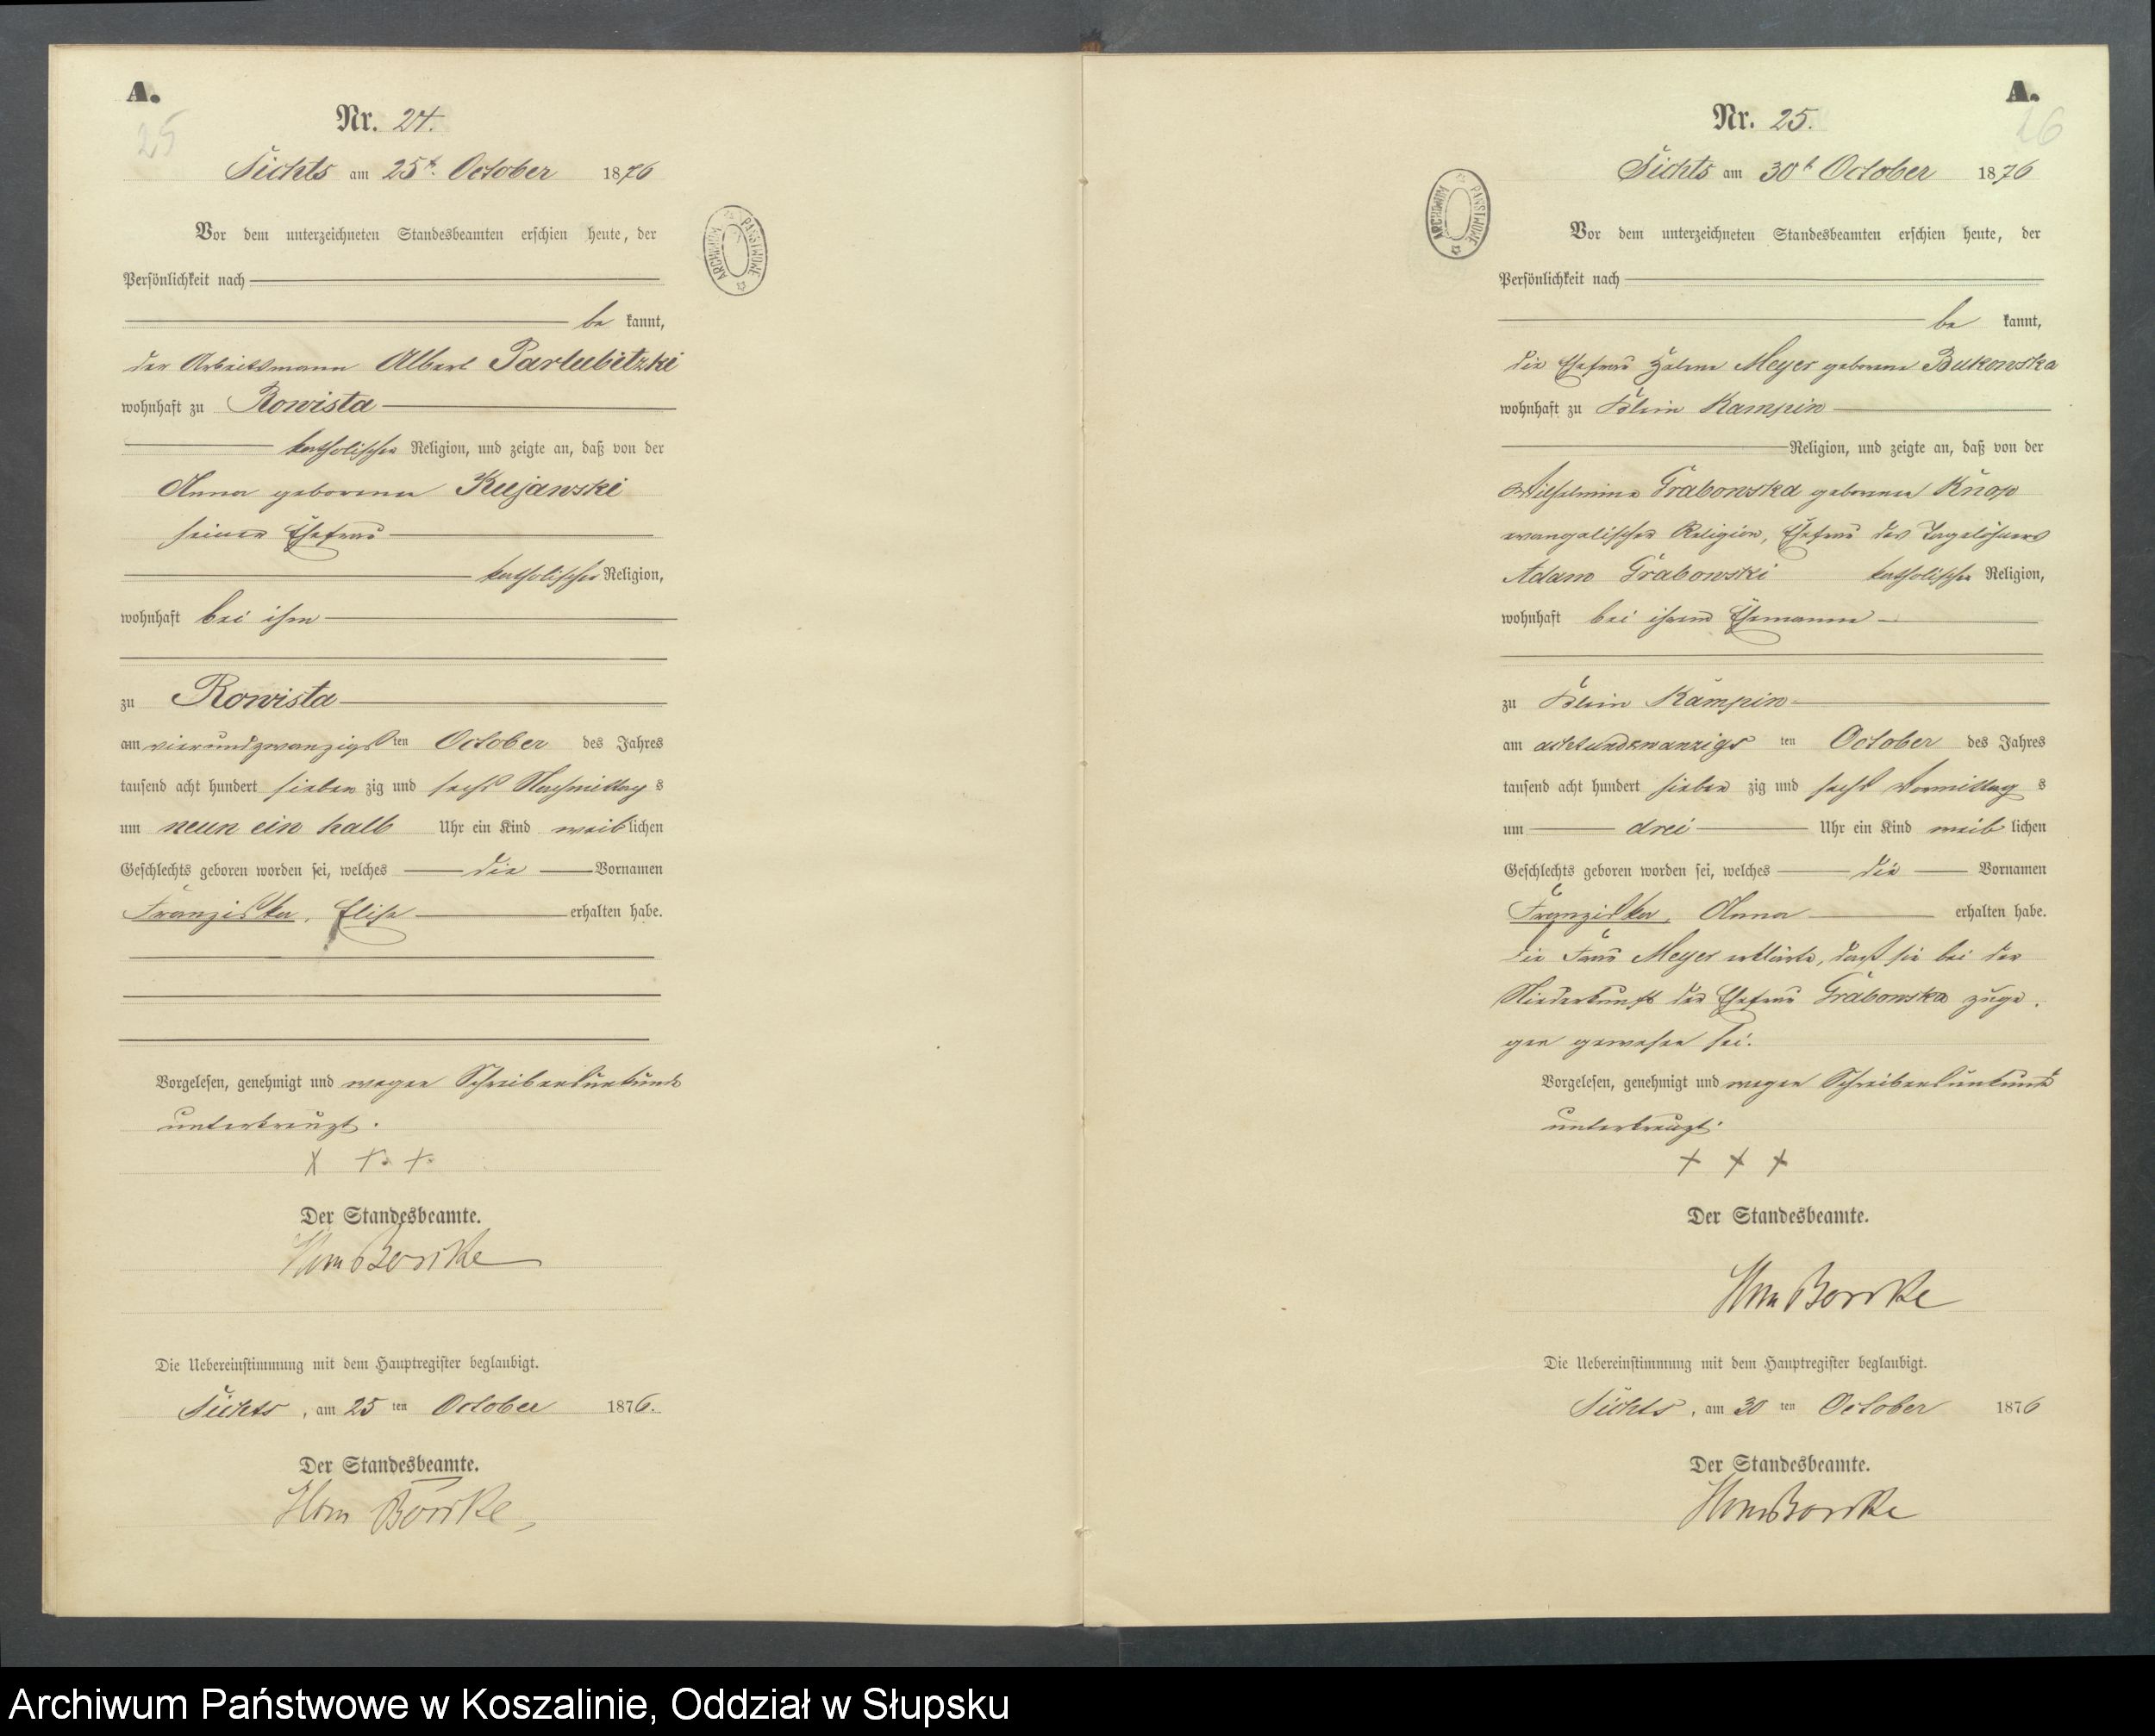 A.
25
Nr. 24.
Sichts am 25t. October 1876
Vor dem unterzeichneten Standesbeamten erschien heute, der
Persönlichkeit nach
be kannt,
der Arbeitsmann Albert Parlubitzki
wohnhaft zu Rowista
katholischer Religion, und zeigte an, daß von der
Anna geborenen Kujawski
seiner Ehefrau
katholischer Religion,
wohnhaft bei ihm
zu Rowista
am vierundzwanzigsten October des Jahres
tausend acht hundert sieben zig und sechs Nachmittag s
um neun ein halb Uhr ein Kind weiblichen
Geschlechts geboren worden sei, welches die Vornamen
Franziska, Elisa erhalten habe.
Vorgelesen, genehmigt und wegen Schreibensunkunde
unterkreuzt.
X + +
Der Standesbeamte.
Die Uebereinstimmung mit dem Hauptregister beglaubigt.
Sichts, am 25 ten October 1876.
Der Standesbeamte.
ARCHIWUM PAŃSTWOWE
A.
26
Nr. 25.
Sichts am 30t October 1876
Vor dem unterzeichneten Standesbeamten erschien heute, der
Persönlichkeit nach
be kannt,
die Ehefrau Meyer geborene Bukowska
wohnhaft zu Klein Kampin
Religion, und zeigte an, daß von der
Wilhelmine Grabowska geborenen Knop
evangelischer Religion, Ehefrau des Tagelöhners
Adam Grabowski katholischer Religion,
wohnhaft bei ihrem Ehemanne
zu Klein Kampin
am achtundzwanzigs ten October des Jahres
tausend acht hundert sieben zig und sechs Vormittag s
um drei Uhr ein Kind weib lichen
Geschlechts geboren worden sei, welches die Vornamen
Franziska, Anna erhalten habe.
Die Frau Meyer erklärte, daß sie bei der
Niederkunft der Ehefrau Grabowska zuge-
gen gewesen sei.
Vorgelesen, genehmigt und wegen Schreibensunkunde
unterkreuzt.
+ + +
Der Standesbeamte.
Die Uebereinstimmung mit dem Hauptregister beglaubigt.
Sichts, am 30 ten October 1876
Der Standesbeamte.
ARCHIWUM PAŃSTWOWE
Archiwum Państwowe w Koszalinie, Oddział w Słupsku